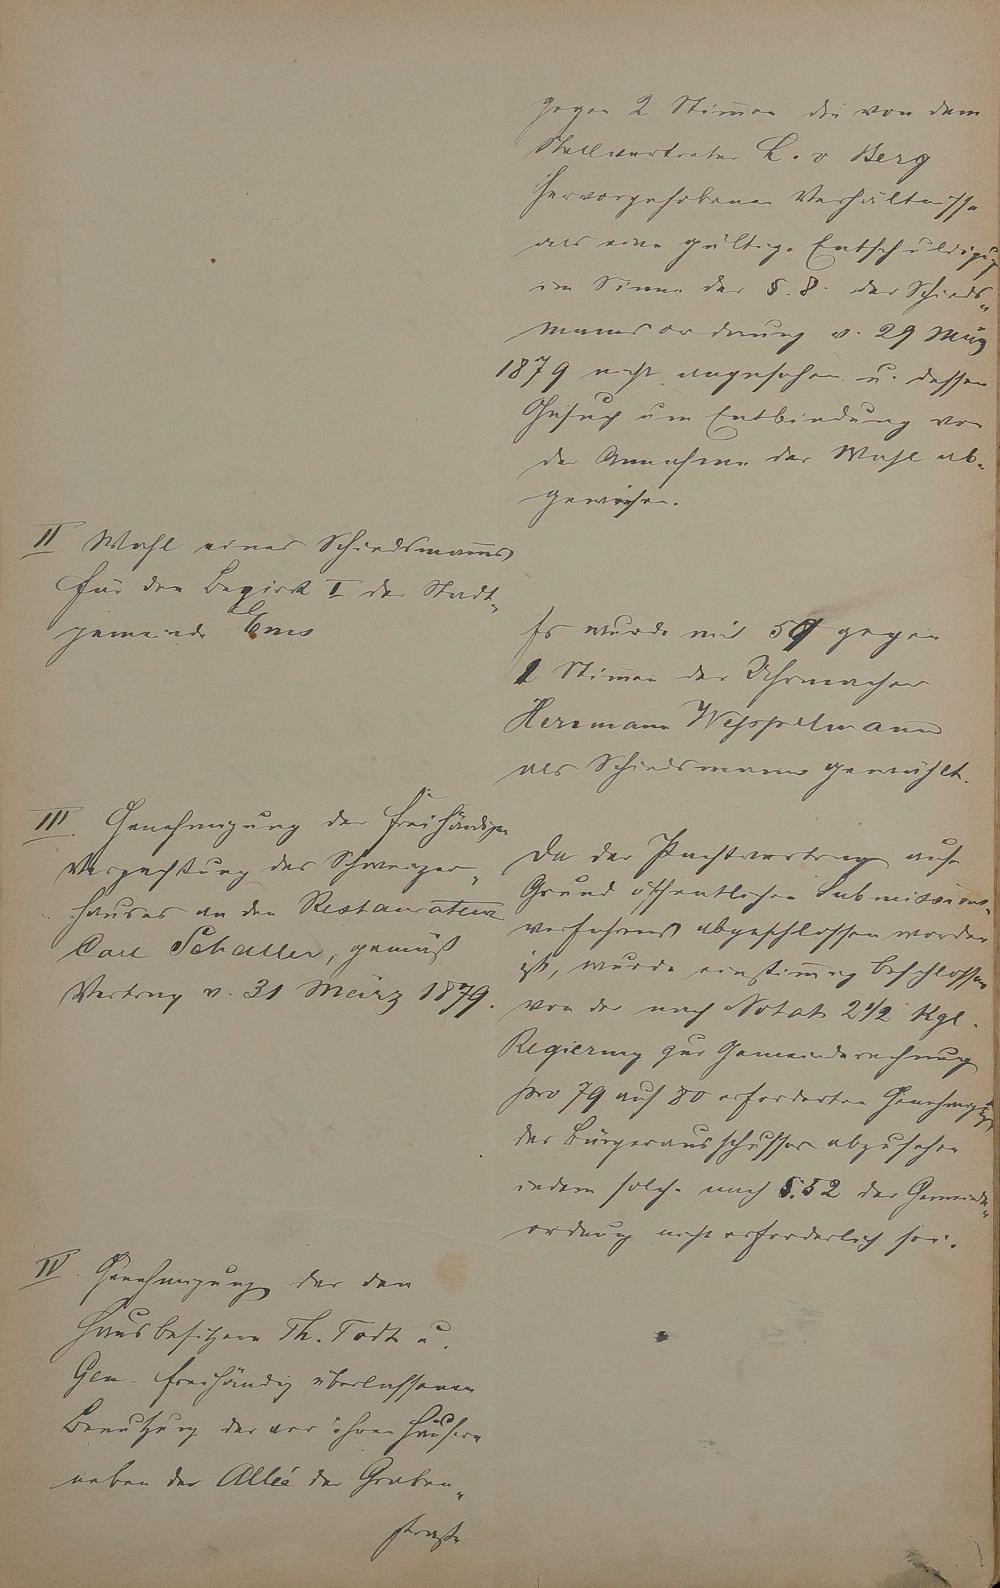 gegen 2 Stimmen die von dem
Stellvertreter L. v Berg
hervorgehobenen Verhältnisse
als eine gültige Entschuldigung
im Sinne des §. 8. der Schieds-
mannsordnung v. 29 März
1879 nicht angesehen u. dessen
Gesuch um Entbindung von
der Annahme der Wahl ab-
gewiesen.
II Wahl eines Schiedsmanns
für den Bezirk I der Stadt-
gemeinde Ems
Es wurde mit 59 gegen
1 Stimmen der Uhrmacher
Hermann Weppelmann
als Schiedsmann gewählt.
III. Genehmigung der freihändigen
Verpachtung des Schweizer-
hauses an den Restaurateur
Carl Schaller, gemäß
Vertrag v. 31 März 1879.
Da der Pachtvertrag auf
Grund öffentlichen Submissions-
verfahrens abgeschlossen worden
ist, wurde einstimmig beschlossen
von der nach Notat 21/2 Kgl.
Regierung zur Gemeinderechnung
pro 79 auf 80 erforderten Genehmigung
des Bürgerausschusses abzusehen
indem solche nach §. 52 der Gemeinde-
ordnung nicht erforderlich sei.
IV. Genehmigung der den
Hausbesitzern Th. Todt u.
Gen. freihändig überlassenen
Benutzung der vor ihren Häusern
neben der Allée der Graben-
straße